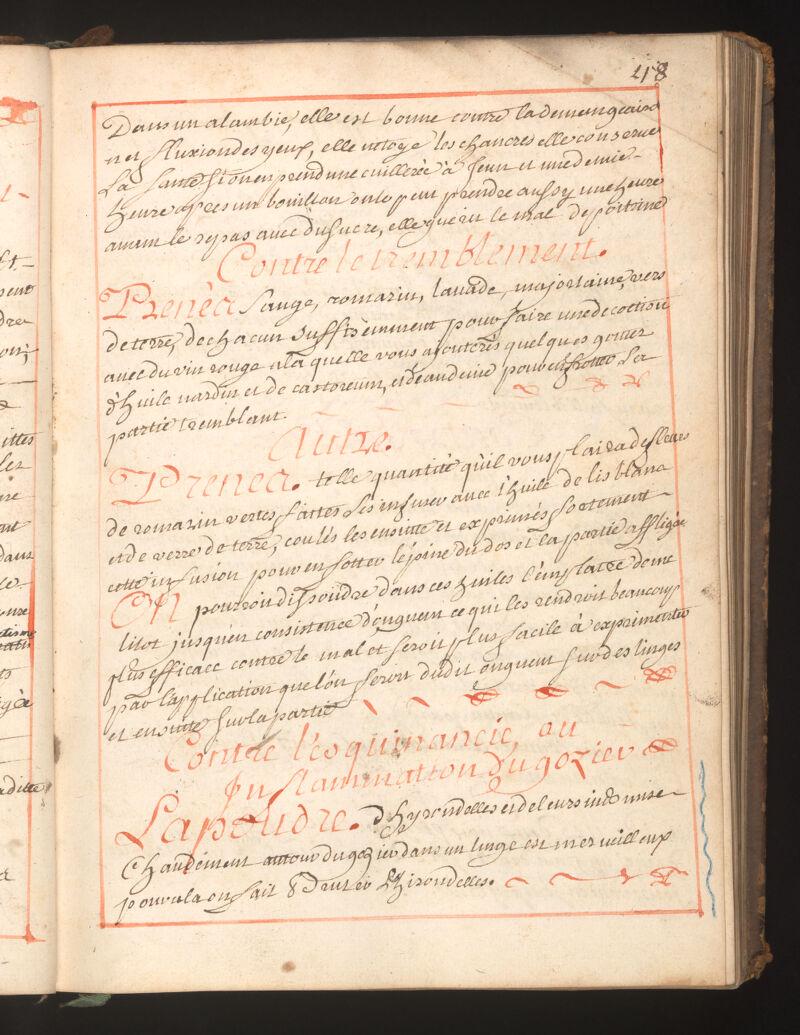 418
Dans un alambic, elle est bonne contre la demengeaison
et fluxion des yeux, elle netoye les chancres elle conserve
La santé si on en prend une cuillerée à Jeun et une demie
heure apres un bouillon on le peut prendre aussy une heure
avant le repas avec du sucre, elle guerit le mal de poitrine
Contre le tremblement.
Prenéz Sauge, romarin, lavāde, majorlaine, vers
de terre, de chacun suffisemment pour faire une decoction
avec du vin rouge a laquelle vous ajouterés quelques goutes
d'huile nardin et de castoreum, et d'eau de vie pour en frotter La
partie tremblant.
Autre.
Prenez. telle quantité qu'il vous plaira de fleurs
de romarin vertes faites Les infuser avec l'huile de lis blanc
et de verre de terre, coulés les ensuitte et exprimés fortement
cette infusion pour en frotter l'épine du dos et la partie affligée
On pourroit dissoudre dans ces huiles l'emplatre de me
lilot jusqu'en consistence d'onguent ce qui les rendroit beaucoup
plus efficace contre le mal et seroit plus facile à experimenter
par l'application que l'on feroit dudit onguent sur des linges
et ensuitte sur la partie
Contre l'esquinancie, ou
Inflammation du gozier
La poudre. d'hyrondelles et de leurs nids mise
Chaudement autour du gozier dans un linge est merveilleux
pour cela on fait d'autres hirondelles.